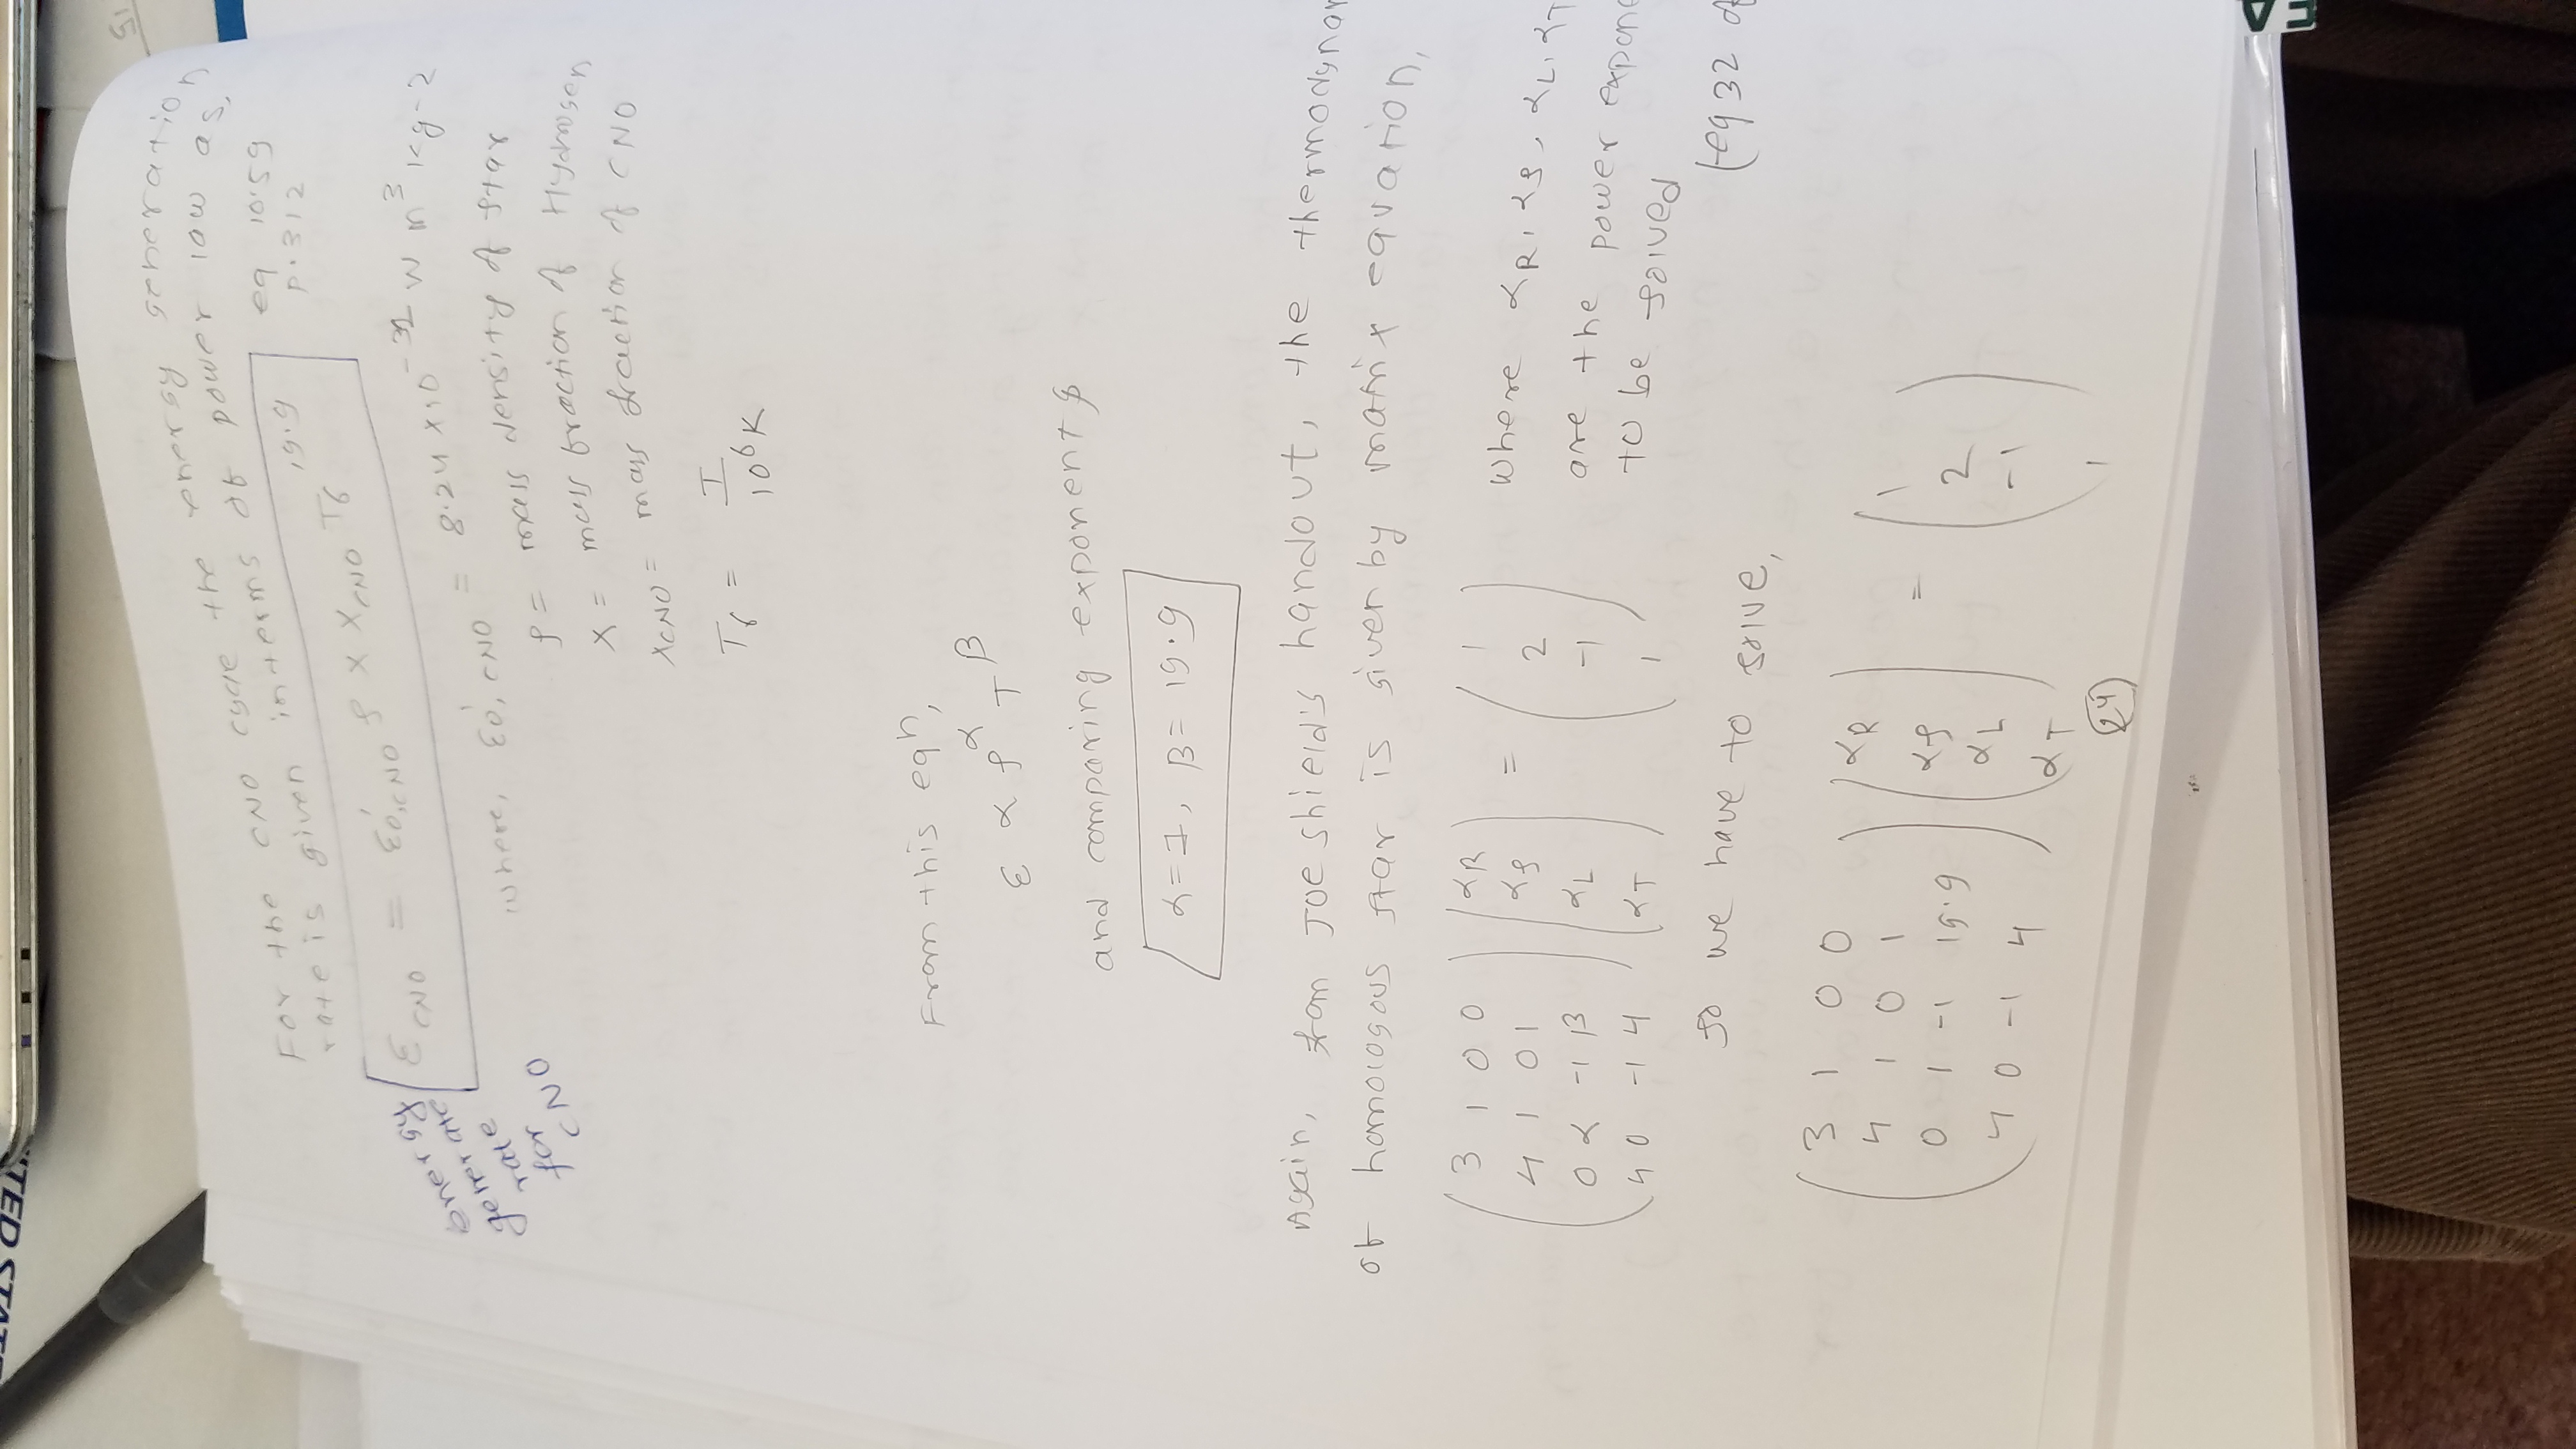 TED STATES
15
For the CNO cycle the energy generation
rate is given interms of power law as,
eq 10.59
p.312
ε CNO = ε0',CNO ρ X X CNO T6^19.9
energy
generate
rate
for
CNO
where, ε0',CNO = 8.24 x 10^-31 W m^3 kg-2
ρ = mass density of star
X = mass fraction of Hydrogen
XCNO = mass fraction of CNO
T6 = T / 10^6 K
From this eqn,
ε α ρ^α T^β
and comparing exponents
α = 1, β = 19.9
Again, from Joe shield's handout, the thermodynam
of homologous star is given by matrix equation,
( 3 1 0 0 ) ( αR ) = ( 1 )
( 4 1 0 1 ) ( αρ ) ( 2 )
( 0 α -1 β ) ( αL ) ( -1 )
( 4 0 -1 4 ) ( αT ) ( 1 )
where αR, αρ, αL, αT
are the power expone
to be solved
(eq 32 of
so we have to solve,
( 3 1 0 0 ) ( αR ) = ( 1 )
( 4 1 0 1 ) ( αρ ) ( 2 )
( 0 1 -1 19.9 ) ( αL ) ( -1 )
( 4 0 -1 4 ) ( αT ) ( 1 )
24
EA